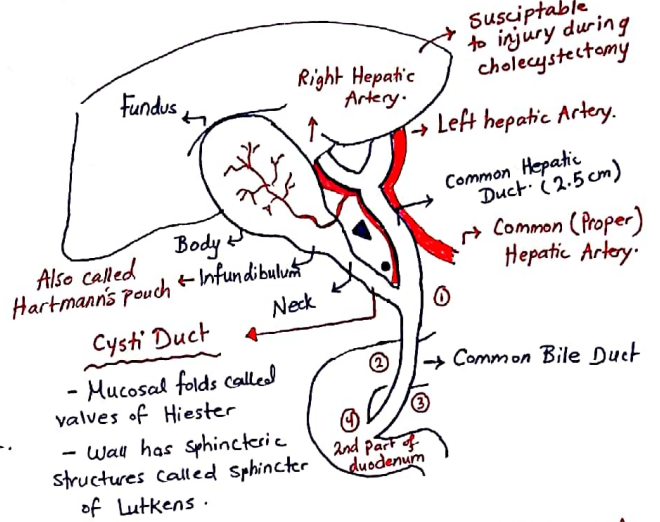 Susciptable
to injury during
cholecystectomy
Right Hepatic
Artery.
Fundus
Left hepatic Artery.
Common Hepatic
Duct. (2.5cm)
Common (Proper)
Hepatic Artery.
Body
Also called
Hartmann's pouch
Infundibulum
Neck
①
Cysti Duct
- Mucosal folds called
valves of Hiester
- Wall has sphincteric
structures called sphincter
of Lutkens.
②
Common Bile Duct
③
④
2nd part of
duodenum